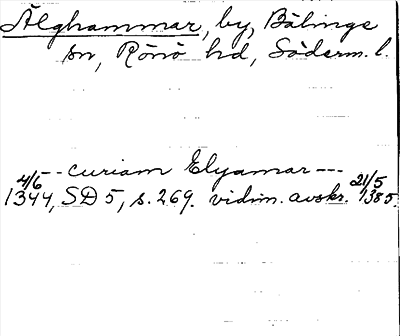 Älghammar, by, Bälinge
sn, Rönö hd, Söderm. l.
-- curiam Elyamar ---
4/6 1344, SD 5, s. 269. vidim. avskr. 21/5 1385.